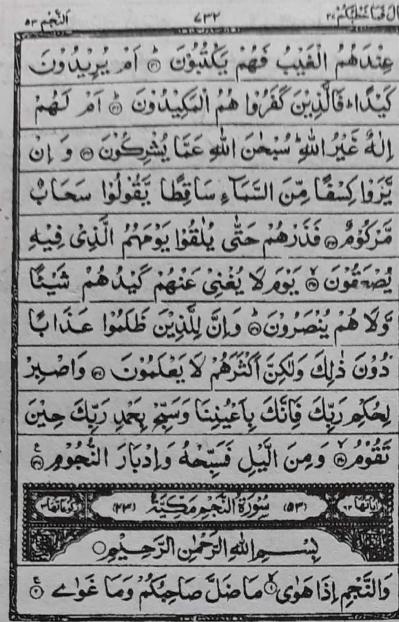 قال فما خطبكم ٢٧ ٧٣٢ النجم ٥٣
عِنْدَهُمُ الْغَيْبُ فَهُمْ يَكْتُبُوْنَ ﴿٤١﴾ اَمْ يُرِيْدُوْنَ
كَيْدًا ؕ فَالَّذِيْنَ كَفَرُوْا هُمُ الْمَكِيْدُوْنَ ﴿٤٢﴾ اَمْ لَهُمْ
اِلٰهٌ غَيْرُ اللّٰهِ ؕ سُبْحٰنَ اللّٰهِ عَمَّا يُشْرِكُوْنَ ﴿٤٣﴾ وَ اِنْ
يَّرَوْا كِسْفًا مِّنَ السَّمَآءِ سَاقِطًا يَّقُوْلُوْا سَحَابٌ
مَّرْكُوْمٌ ﴿٤٤﴾ فَذَرْهُمْ حَتّٰى يُلٰقُوْا يَوْمَهُمُ الَّذِيْ فِيْهِ
يُصْعَقُوْنَ ﴿٤٥﴾ يَوْمَ لَا يُغْنِيْ عَنْهُمْ كَيْدُهُمْ شَيْئًا
وَّلَا هُمْ يُنْصَرُوْنَ ﴿٤٦﴾ وَاِنَّ لِلَّذِيْنَ ظَلَمُوْا عَذَابًا
دُوْنَ ذٰلِكَ وَلٰكِنَّ اَكْثَرَهُمْ لَا يَعْلَمُوْنَ ﴿٤٧﴾ وَاصْبِرْ
لِحُكْمِ رَبِّكَ فَاِنَّكَ بِاَعْيُنِنَا وَسَبِّحْ بِحَمْدِ رَبِّكَ حِيْنَ
تَقُوْمُ ﴿٤٨﴾ وَمِنَ الَّيْلِ فَسَبِّحْهُ وَاِدْبَارَ النُّجُوْمِ ﴿٤٩﴾
اٰياتها ٦٢ (٥٣) سُوْرَةُ النَّجْمِ مَكِّيَّةٌ (٢٣) ركوعاتها ٣
بِسْمِ اللّٰهِ الرَّحْمٰنِ الرَّحِيْمِ
وَالنَّجْمِ اِذَا هَوٰى ﴿١﴾ مَا ضَلَّ صَاحِبُكُمْ وَمَا غَوٰى ﴿٢﴾